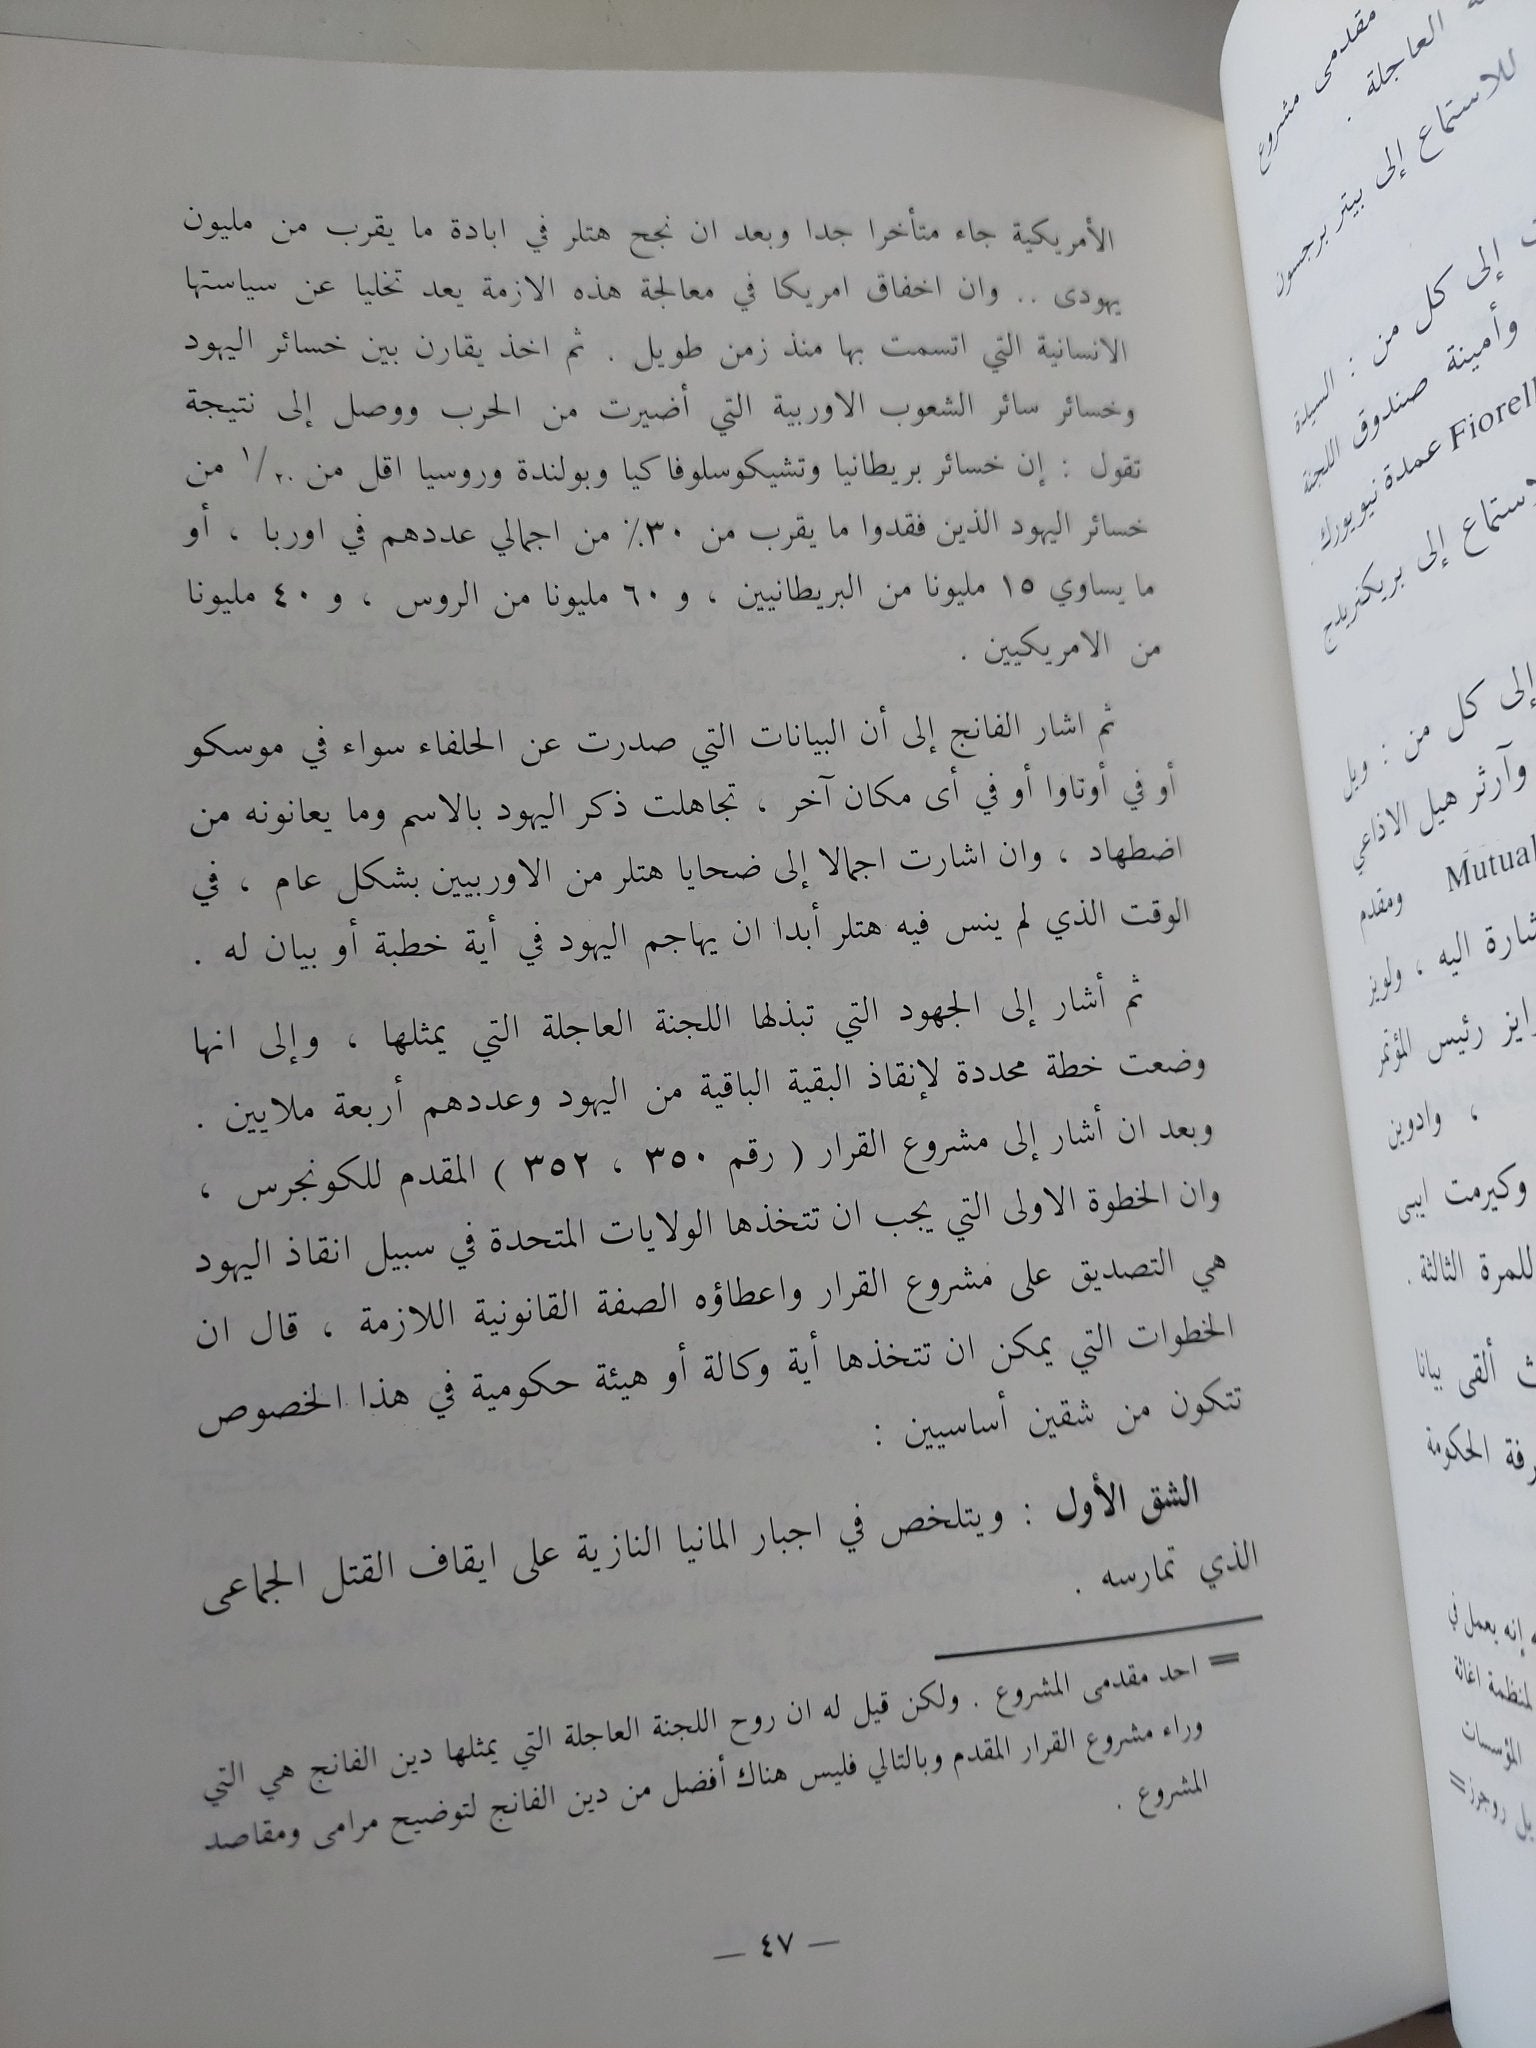 الأمريكية جاء متأخرا جدا وبعد ان نجح هتلر في ابادة ما يقرب من مليون
يهودى .. وان اخفاق امريكا في معالجة هذه الازمة يعد تخليا عن سياستها
الانسانية التي اتسمت بها منذ زمن طويل . ثم اخذ يقارن بين خسائر اليهود
وخسائر سائر الشعوب الاوربية التي أضيرت من الحرب ووصل إلى نتيجة
تقول : إن خسائر بريطانيا وتشيكوسلوفاكيا وبولندة وروسيا اقل من ١/٢٠ من
خسائر اليهود الذين فقدوا ما يقرب من ٣٠٪ من اجمالي عددهم في اوربا ، أو
ما يساوي ١٥ مليونا من البريطانيين ، و ٦٠ مليونا من الروس ، و ٤٠ مليونا
من الامريكيين .
ثم اشار الفانج إلى أن البيانات التي صدرت عن الحلفاء سواء في موسكو
أو في أوتاوا أو في أى مكان آخر ، تجاهلت ذكر اليهود بالاسم وما يعانونه من
اضطهاد ، وان اشارت اجمالا إلى ضحايا هتلر من الاوربيين بشكل عام ، في
الوقت الذي لم ينس فيه هتلر أبدا ان يهاجم اليهود في أية خطبة أو بيان له .
ثم أشار إلى الجهود التي تبذلها اللجنة العاجلة التي يمثلها ، وإلى انها
وضعت خطة محددة لإنقاذ البقية الباقية من اليهود وعددهم أربعة ملايين .
وبعد ان أشار إلى مشروع القرار ( رقم ٣٥٠ ، ٣٥٢ ) المقدم للكونجرس ،
وان الخطوة الاولى التي يجب ان تتخذها الولايات المتحدة في سبيل انقاذ اليهود
هي التصديق على مشروع القرار واعطاؤه الصفة القانونية اللازمة ، قال ان
الخطوات التي يمكن ان تتخذها أية وكالة أو هيئة حكومية في هذا الخصوص
تتكون من شقين أساسيين :
الشق الأول : ويتلخص في اجبار المانيا النازية على ايقاف القتل الجماعى
الذي تمارسه .
= احد مقدمى المشروع . ولكن قيل له ان روح اللجنة العاجلة التي يمثلها دين الفانج هي التي
وراء مشروع القرار المقدم وبالتالي فليس هناك أفضل من دين الفانج لتوضيح مرامى ومقاصد
المشروع .
— ٤٧ —
مقدمى مشروع
العاجلة .
للاستماع إلى بيتر برجسون
إلى كل من : السيدة
وأمينة صندوق اللجنة
عمدة نيويورك
إلى بريكنريدج
إلى كل من : ويل
وآرثر هيل الاذاعي
Mutual ومقدم
اليه ، ولويز
رئيس المؤتمر
، وادوين
وكيرمت ايبى
للمرة الثالثة .
ألقى بيانا
الحكومة
إنه يعمل في
لمنظمة اغاثة
المؤسسات
روجرز=